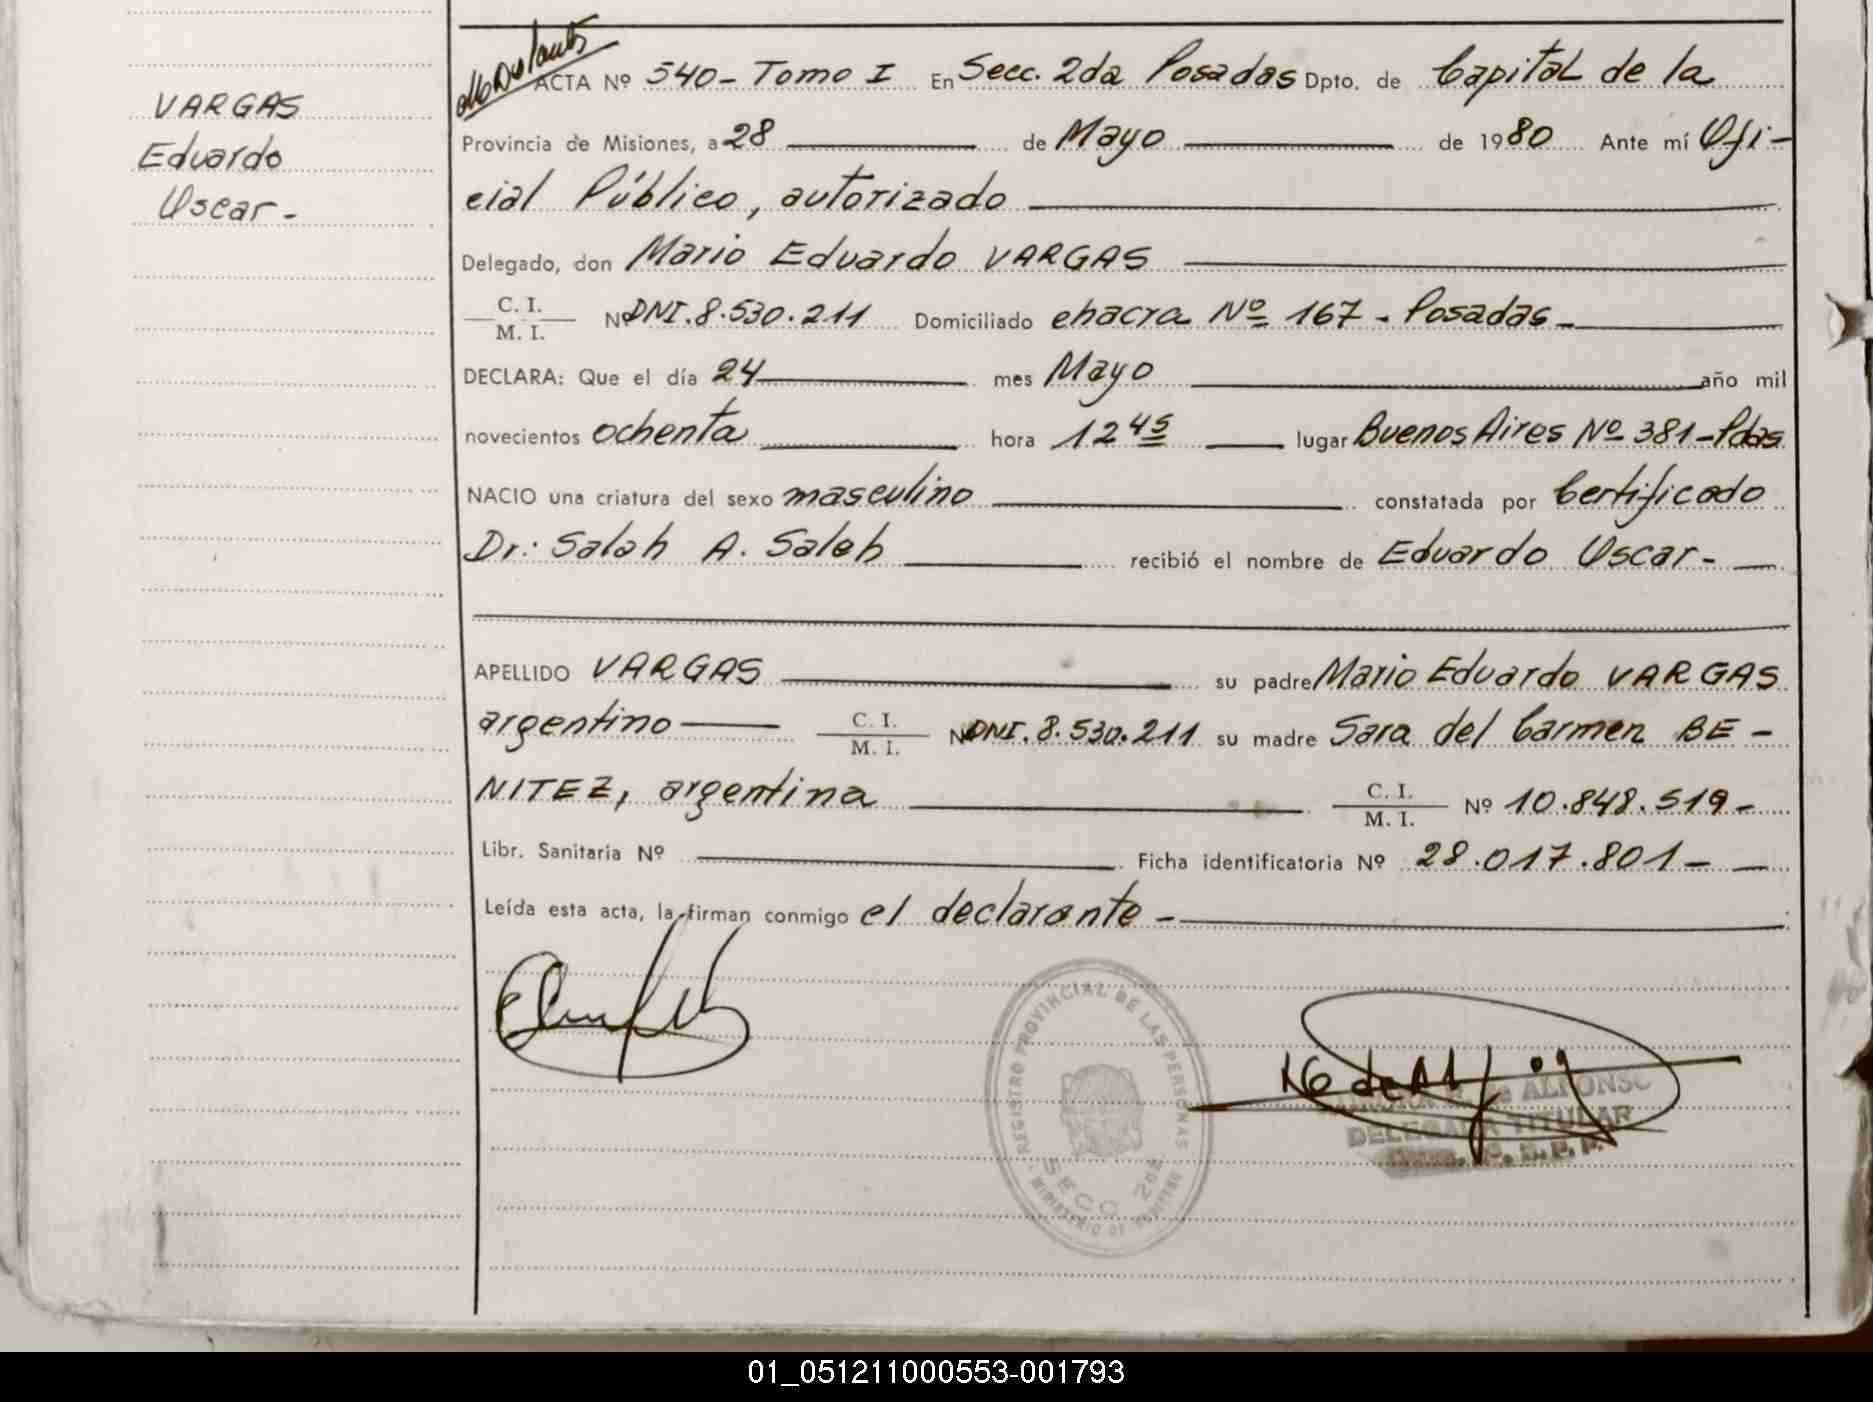 VARGAS
Eduardo
Oscar-
ACTA Nº 540- Tomo I En Secc. 2da Posadas Dpto. de Capital de la
Provincia de Misiones, a 28 de Mayo de 1980 Ante mí Ofi-
cial Público, autorizado
Delegado, don Mario Eduardo VARGAS
C. I.
M. I.
Nº DNI. 8.530.211 Domiciliado chacra Nº 167 - Posadas-
DECLARA: Que el día 24 mes Mayo año mil
novecientos ochenta hora 12 45 lugar Buenos Aires Nº 381-Pdas
NACIO una criatura del sexo masculino constatada por Certificado
Dr: Salah A. Saleh recibió el nombre de Eduardo Oscar-
APELLIDO VARGAS su padre Mario Eduardo VARGAS
argentino C. I. M. I. Nº DNI. 8.530.211 su madre Sara del Carmen BE-
NITEZ, argentina C. I. M. I. Nº 10.848.519-
Libr. Sanitaria Nº Ficha identificatoria Nº 28.017.801-
Leída esta acta, la firman conmigo el declarante-
REGISTRO PROVINCIAL DE LAS PERSONAS
SECC 2da
de ALFONSO
DELEGADA TITULAR
01_051211000553-001793